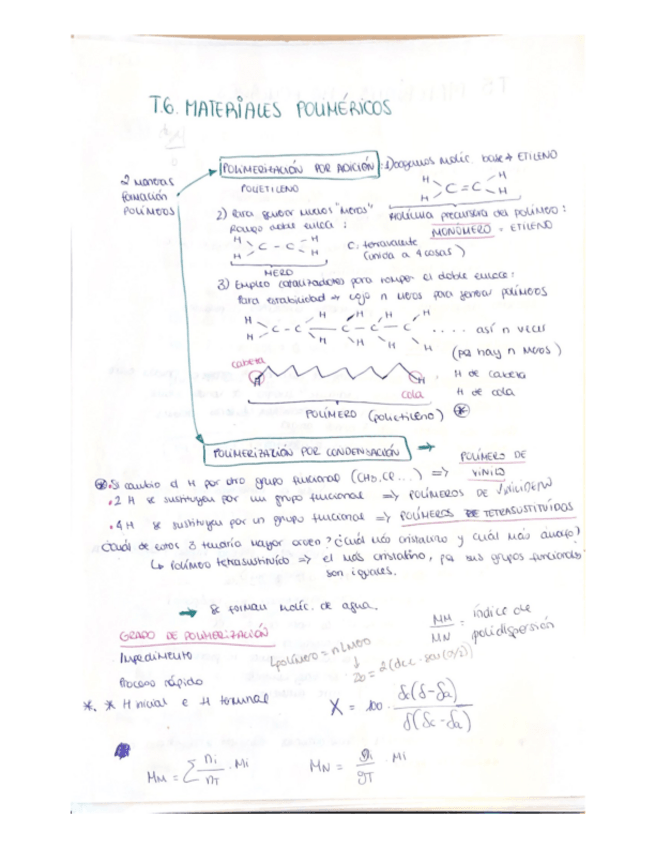 T.6. MATERIALES POLIMÉRICOS
2 maneras
formación
POLÍMEROS
POLIMERIZACIÓN POR ADICIÓN : 1) cogemos moléc. base → ETILENO
POLIETILENO
H H
C = C
H H
molécula precursora del polímero :
MONÓMERO = ETILENO
2) Para generar muchos "meros"
Rompo doble enlace :
H H
C - C
H H
MERO
C. tetravalente
(unida a 4 cosas)
3) Empleo catalizadores para romper el doble enlace :
Para estabilidad → cojo n meros para generar polímeros
H H H H
C - C — C - C - C
H H H H
.... así n veces
(pq hay n meros)
cabeza
H
H
cola
H de cabeza
H de cola
POLÍMERO (polietileno) *
POLIMERIZACIÓN POR CONDENSACIÓN →
* Si cambio el H por otro grupo funcional (CH3, CP...) => POLÍMERO DE VINILO
• 2 H se sustituyen por un grupo funcional => POLÍMEROS DE VINILIDENO
• 4 H se sustituyen por un grupo funcional => POLÍMEROS DE TETRASUSTITUIDOS
¿Cuál de estos 3 tendría mayor orden? ¿Cuál más cristalino y cuál más amorfo?
↳ Polímero tetrasustituido => el más cristalino, pq sus grupos funcionales
son iguales.
→ Se forman moléc. de agua.
GRADO DE POLIMERIZACIÓN
Impedimento
Proceso rápido
*. * H inicial e H terminal
Lpolímero = n Lmero
MM / MN = índice de polidispersión
X = 100 · δc(δ-δa) / δ(δc-δa)
MM = Σ ni / nT · Mi
MN = gi / gT · Mi